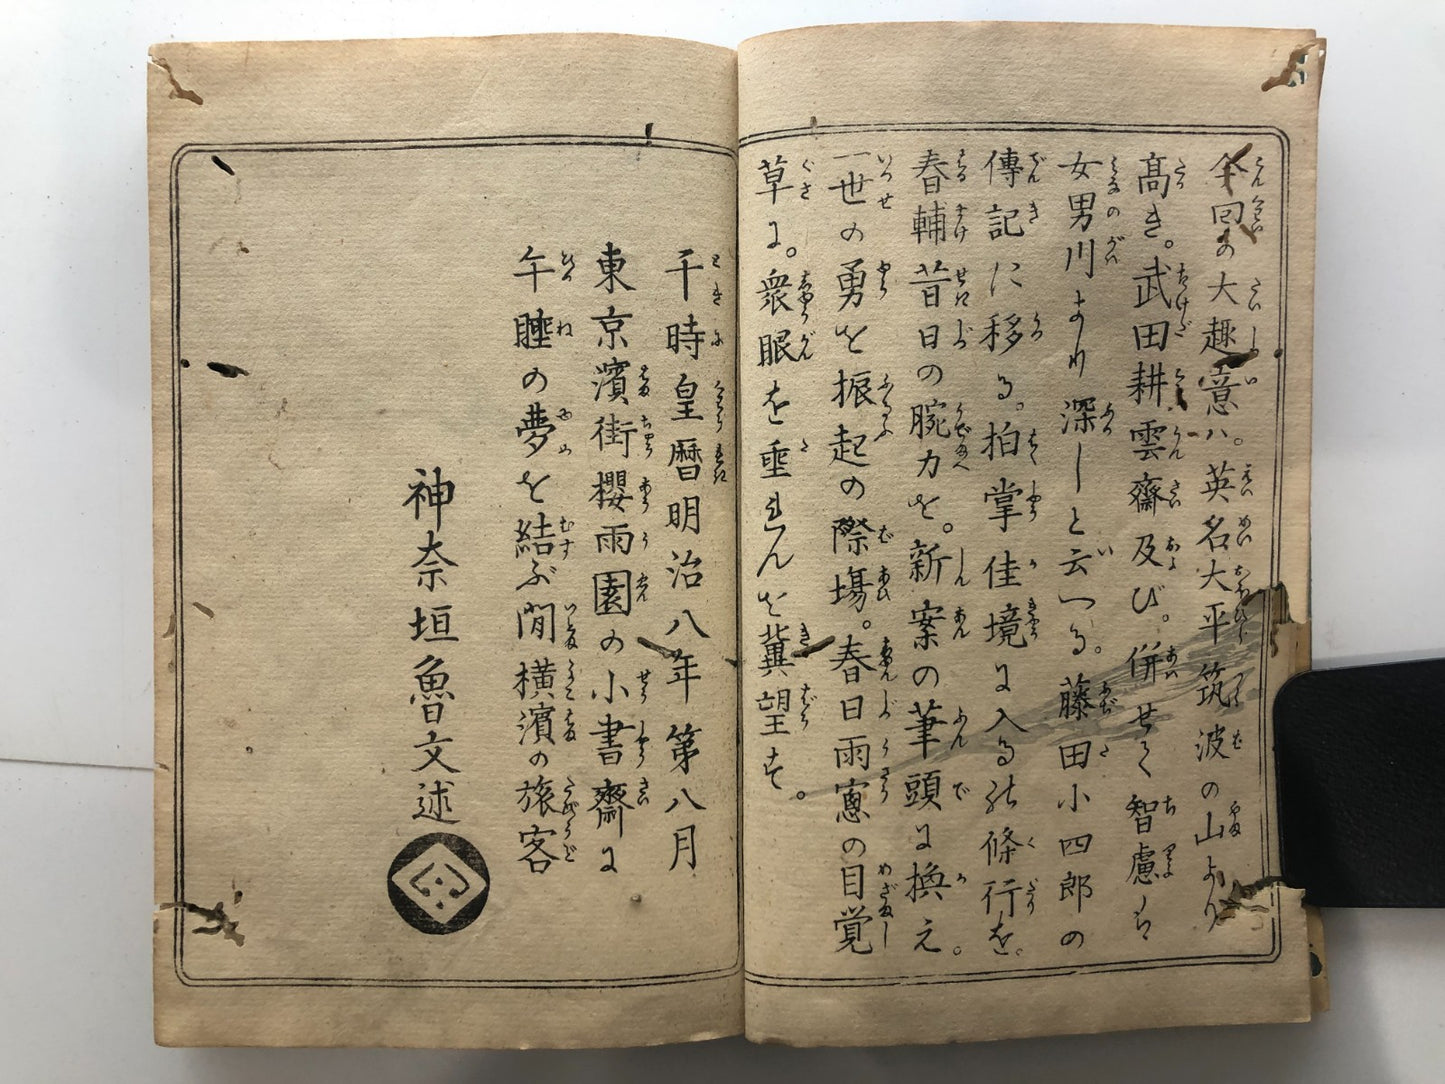 今回の大趣意ハ。英名大平筑波の山より
髙き。武田耕雲齋及び。併せて智慮ハ
女男川より深しと云へる。藤田小四郎の
傳記に移る。拍掌佳境に入る的條行を。
春輔昔日の腕力を。新案の筆頭に換え。
一世の勇を振起の際塲。春日雨窓の目覚
草に。衆眼を垂れんを冀望す。
干時皇暦明治八年第八月
東京濱街櫻雨園の小書齋に
午睡の夢を結ぶ間横濱の旅客
神奈垣魯文述